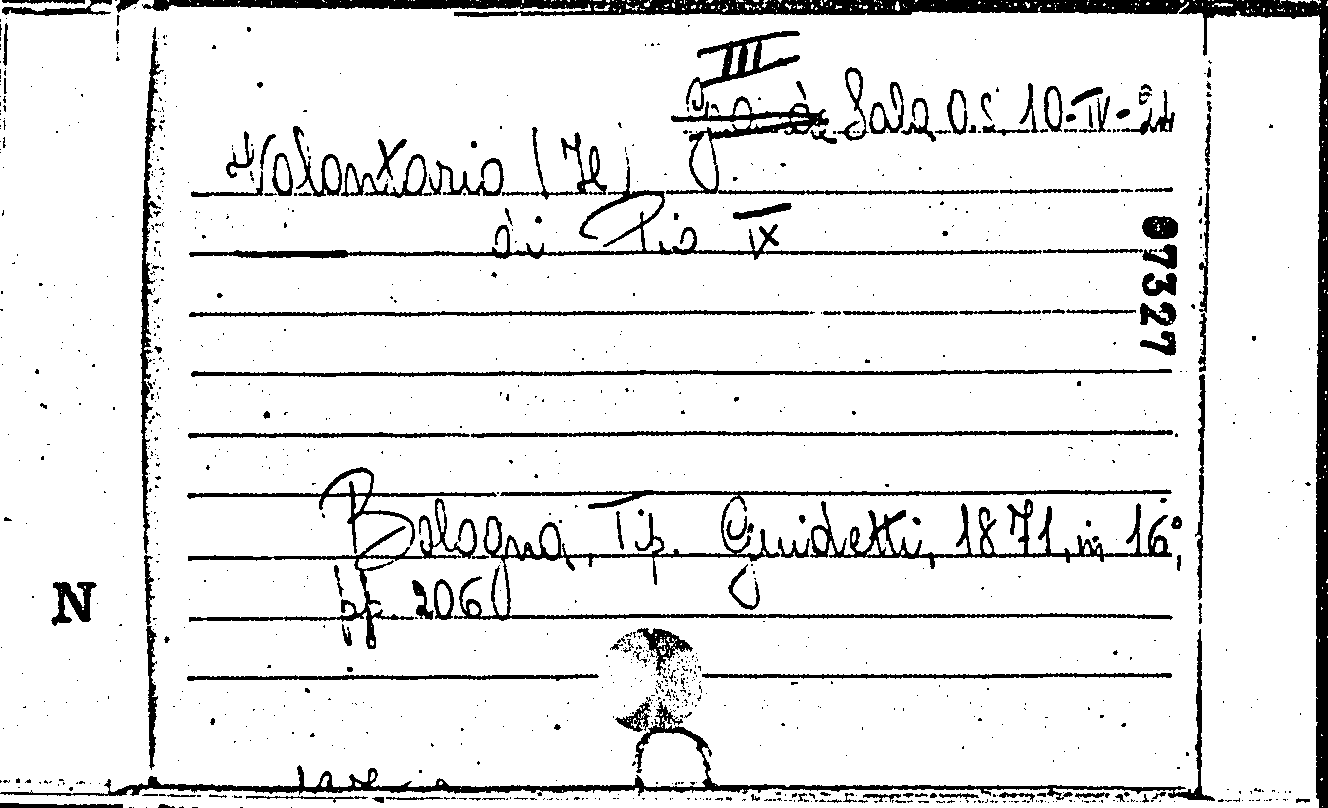 III
Sala O.S. 10-IV-24
Volontario (Il)
di Pio IX
07327
Bologna, Tip. Guidetti, 1871, in 16°,
pp. 206
N